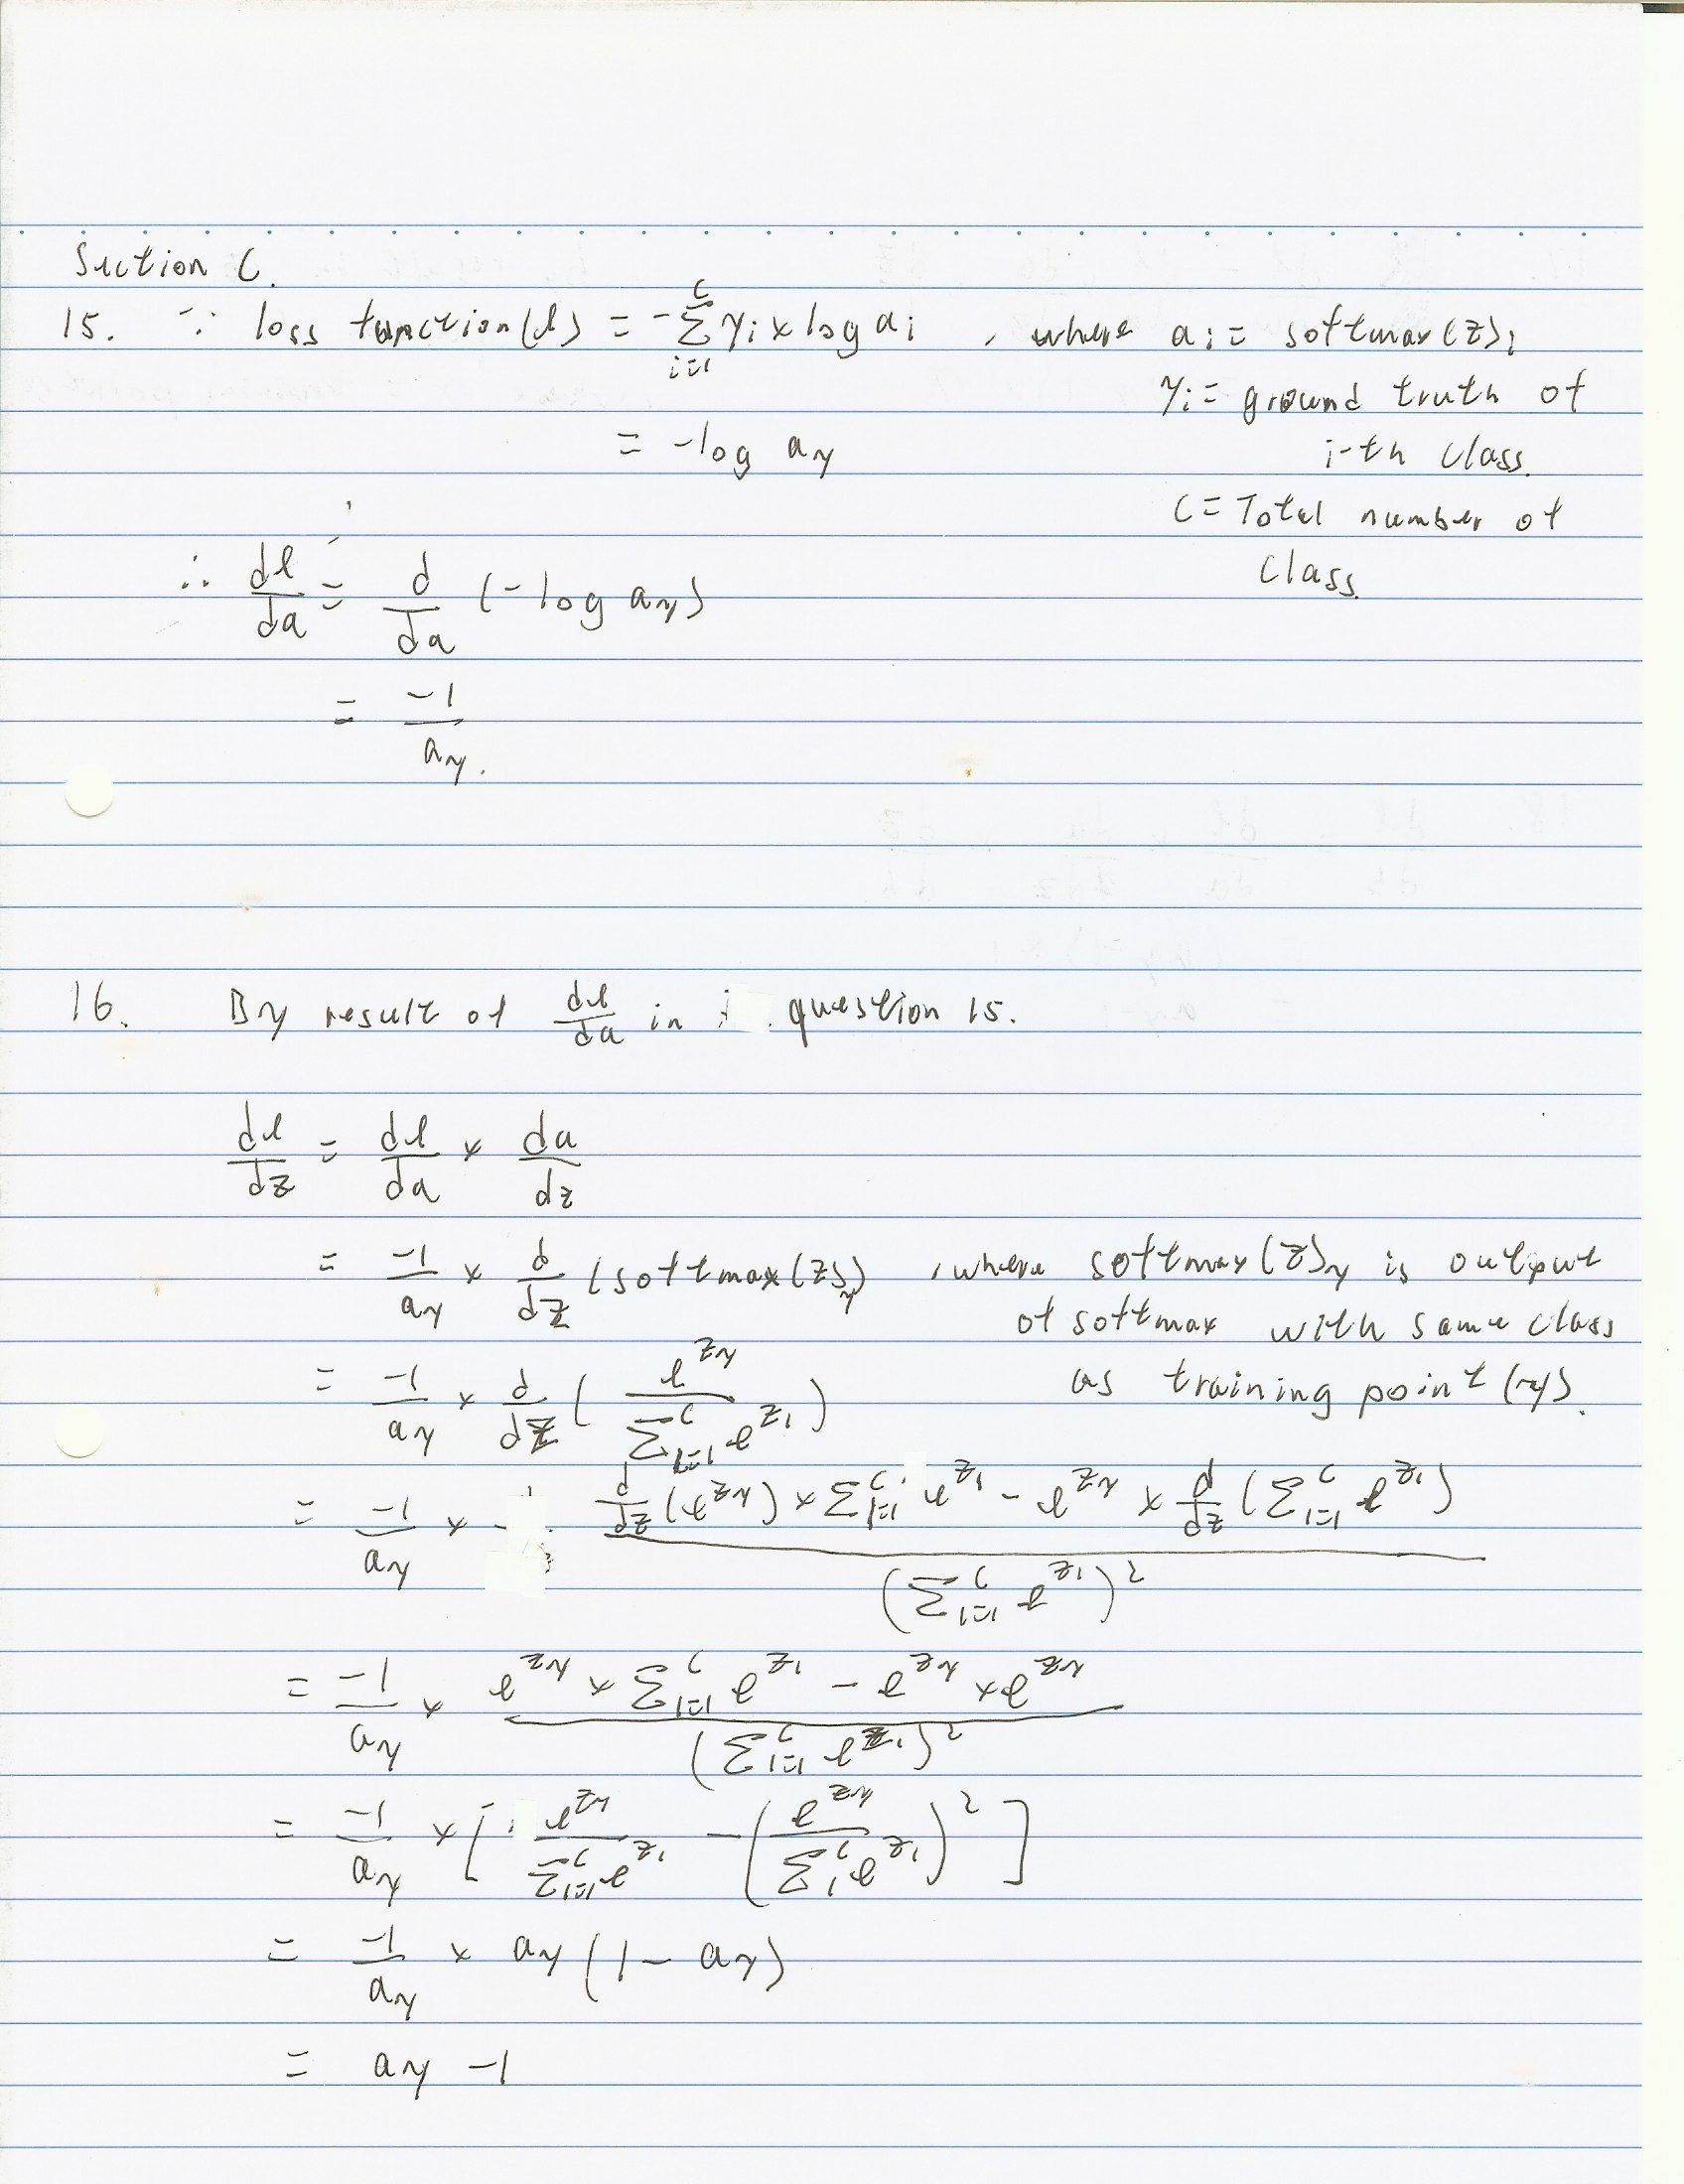 Section C.
15. ∵ loss function(l) = -∑_{i=1}^{C} y_i x log a_i , where a_i = softmax(z)_i
y_i = ground truth of
= -log a_y i-th class.
C = Total number of
class.
∴ dl/da = d/da (-log a_y)
= -1/a_y.
16. By result of dl/da in question 15.
dl/dz = dl/da x da/dz
= -1/a_y x d/dz (softmax(z)_y) , where softmax(z)_y is output
of softmax with same class
as training point (y).
= -1/a_y x d/dz ( e^{z_y} / ∑_{i=1}^{C} e^{z_i} )
= -1/a_y x ( d/dz (e^{z_y}) x ∑_{i=1}^{C} e^{z_i} - e^{z_y} x d/dz (∑_{i=1}^{C} e^{z_i}) ) / (∑_{i=1}^{C} e^{z_i})^2
= -1/a_y x ( e^{z_y} x ∑_{i=1}^{C} e^{z_i} - e^{z_y} x e^{z_y} ) / (∑_{i=1}^{C} e^{z_i})^2
= -1/a_y x [ e^{z_y} / ∑_{i=1}^{C} e^{z_i} - ( e^{z_y} / ∑_{i}^{C} e^{z_i} )^2 ]
= -1/a_y x a_y (1 - a_y)
= a_y - 1